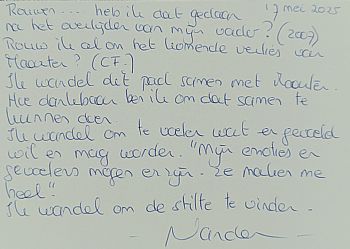 Rouwen... heb ik dat gedaan 17 mei 2025
na het overlijden van mijn vader? (2007)
Rouw ik al om het komende verlies van
Maarten? (CF.)
Ik wandel dit pad samen met Maarten.
Hoe dankbaar ben ik om dat samen te
kunnen doen.
Ik wandel om te voelen wat er gevoeld
wil en mag worden. "Mijn emoties en
gevoelens mogen er zijn. Ze maken me
heel".
Ik wandel om de stilte te vinden.